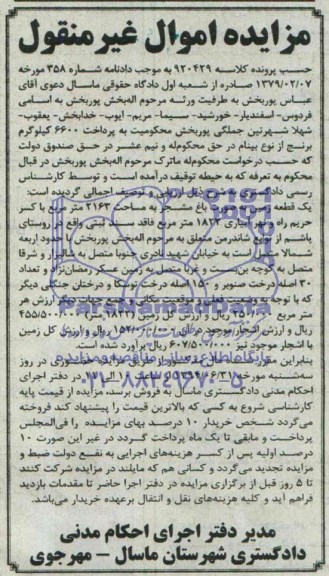 مزایده اموال غیرمنقول
حسب پرونده کلاسه ۹۲۰۴۲۹ به موجب دادنامه شماره ۳۵۸ مورخه
۱۳۷۹/۰۲/۰۷ صادره از شعبه اول دادگاه حقوقی ماسال دعوی آقای
عباس پوربخش به طرفیت ورثه مرحوم اله‌بخش پوربخش به اسامی
فردوس- اسفندیار- خورشید- سیما- مریم- ایوب- خدابخش- یعقوب-
شهلا شهرتین جملگی پوربخش محکومیت به پرداخت ۶۶۰۰ کیلوگرم
برنج از نوع بینام در حق محکوم‌له و نیم عشر در حق صندوق دولت
که حسب درخواست محکوم‌له ماترک مرحوم اله‌بخش پوربخش در قبال
محکوم به تعرفه که به حیطه توقیف درآمده است و توسط کارشناس
رسمی دادگستری به شرح ذیل ارزیابی و توصیف اجمالی گردیده است:
یک قطعه زمین به صورت باغ مشجر به مساحت ۲۱۶۳ متر مربع با کسر
حریم راه و نهر انباری ۱۸۲۲ متر مربع فاقد سند ثبتی واقع در روستای
پاشم از توابع شاندرمن متعلق به مرحوم اله‌بخش پوربخش با حدود اربعه
شمالا متصل است به خیابان شهید نادری جنوبا متصل به شالیزار و شرقا
متصل به کوچه بن‌بست و غربا متصل به زمین عسکر رمضان‌نژاد و تعداد
۳۰ اصله درخت صنوبر و ۱۵۰ اصله درخت توسکا و درختان جنگلی دیگر
که با توجه به وضعیت فعلی و موقعیت مکانی و جمیع جهات دیگر ارزش هر
متر مربع ۲۵۰/۰۰۰ ریال و ارزش کل زمین (۱۸۲۲متر) ۴۵۵/۵۰۰/۰۰۰
ریال و ارزش اشجار موجود در آن ۱۵۲/۰۰۰/۰۰۰ ریال و ارزش کل زمین
با اشجار موجود نیز ۶۰۷/۵۰۰/۰۰۰ ریال برآورد شده است.
بنابراین مقرر گردید ملک مذکور از طریق مزایده حضوری در روز
سه‌شنبه مورخه ۱۳۹۴/۶/۳۱ از ساعت ۱۰ الی ۱۲ در دفتر اجرای
احکام مدنی دادگستری ماسال به فروش برسد، مزایده از قیمت پایه
کارشناسی شروع به کسی که بالاترین قیمت را پیشنهاد کند فروخته
می‌گردد شخص خریدار ۱۰ درصد بهای مزایده را فی‌المجلس
پرداخت و مابقی تا یک ماه پرداخت گردد در غیر این صورت ۱۰
درصد اولیه پس از کسر هزینه‌های اجرایی به نفع دولت ضبط و
مزایده تجدید می‌گردد و کسانی هم که مایلند در مزایده شرکت کنند
تا ۵ روز قبل از برگزاری مزایده در دفتر اجرا حاضر تا مقدمات بازدید
فراهم آید و کلیه هزینه‌های نقل و انتقال برعهده خریدار می‌باشد.
مدیر دفتر اجرای احکام مدنی
دادگستری شهرستان ماسال – مهرجوی
پایگاه اطلاع رسانی مناقصه و مزایده
۰۲۱-۸۸۳۴۹۶۷۰-۵